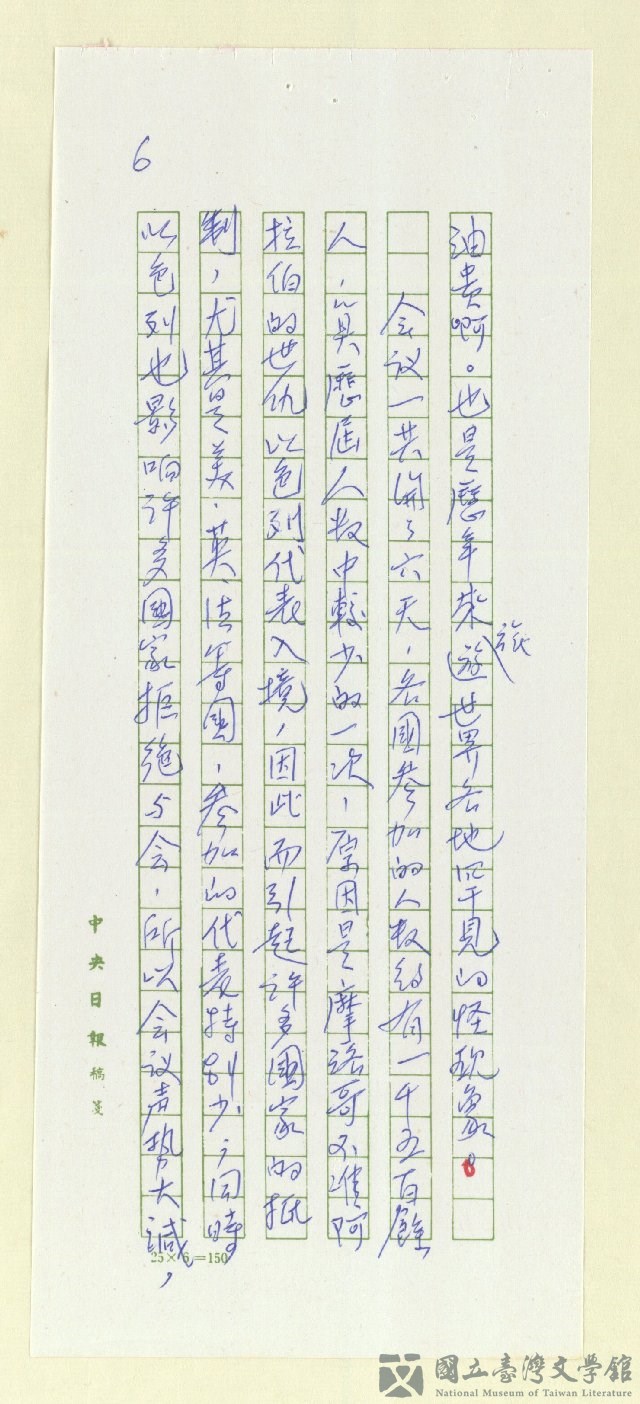 6
油貴啊。也是歷年來旅遊世界各地罕見的怪現象。
会议一共開了六天，各國参加的人数約有一千五百餘
人，算歷屆人数中較少的一次，原因是摩洛哥不准阿
拉伯的世仇以色列代表入境，因此而引起許多國家的抵
制，尤其是美、英、法等國，参加的代表特别少，同時
以色列也影响許多國家拒绝与会，所以会议声势大減，
中央日報稿箋
25×6=150
國立臺灣文學館
National Museum of Taiwan Literature